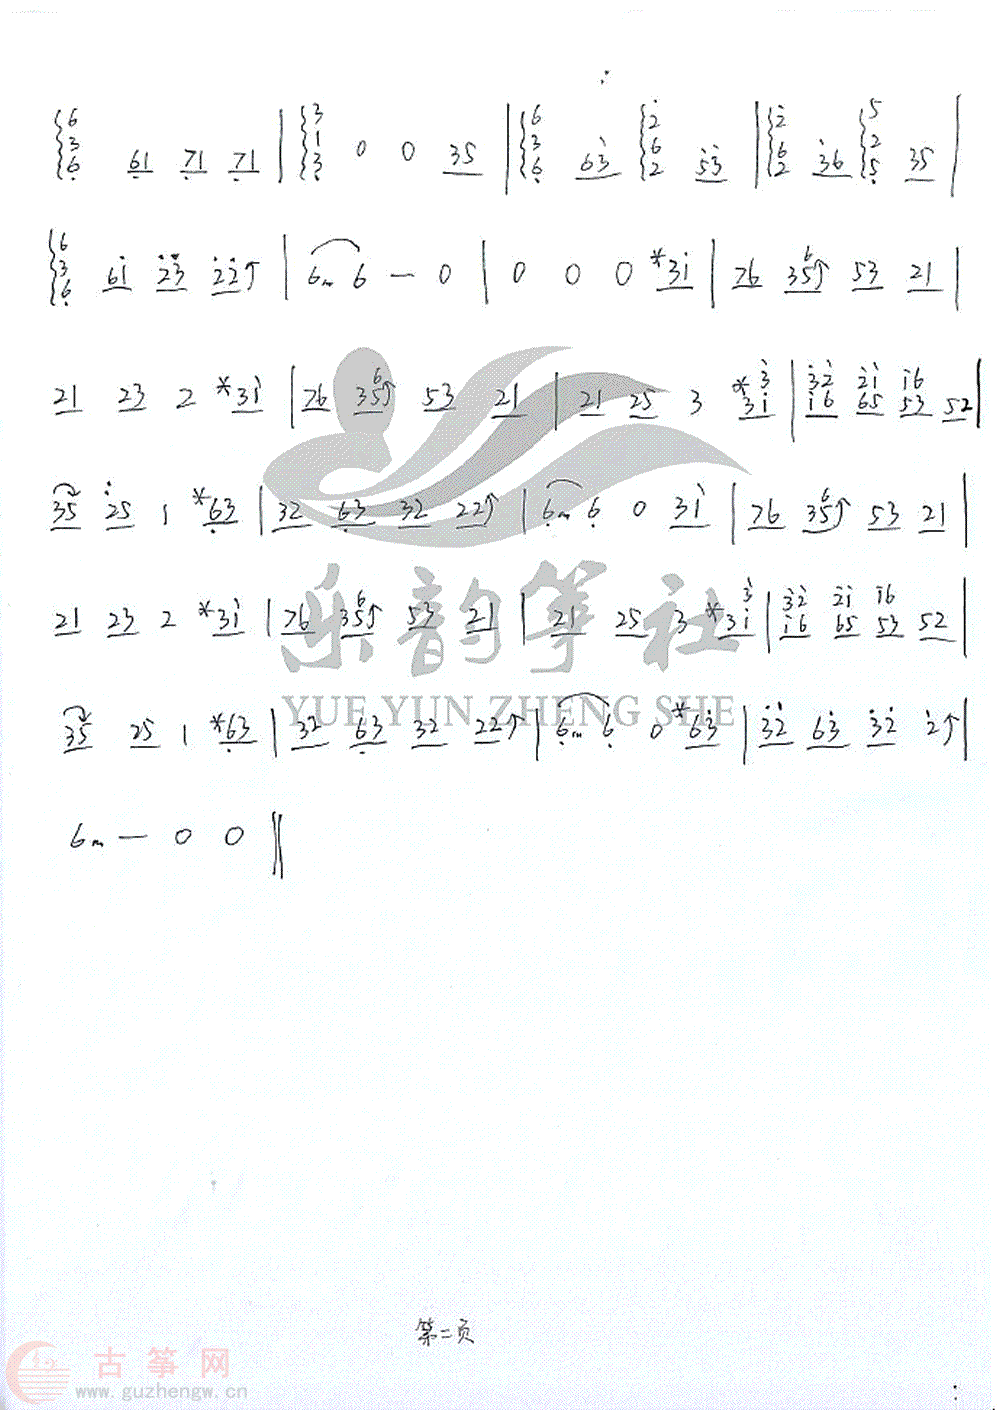 6 3 6 61 71 71 | 3 1 3 0 0 35 | 6 3 6 63 2 6 2 53 | 2 6 2 36 5 2 5 35 |
6 3 6 61 23 22↑ | 6m 6 — 0 | 0 0 0 *31 | 76 35⁶↑ 53 21 |
21 23 2 *31 | 76 35⁶↑ 53 21 | 21 25 3 *3 31 | 32 16 21 65 16 53 52 |
35 25 1 *63 | 32 63 32 22↑ | 6m 6 0 31 | 76 35⁶↑ 53 21 |
21 23 2 *31 | 76 35⁶↑ 53 21 | 21 25 3 *3 31 | 32 16 21 65 16 53 52 |
35 25 1 *63 | 32 63 32 22↑ | 6m 6 0 *63 | 32 63 32 2↑ |
6m — 0 0 ‖
乐韵筝社
YUE YUN ZHENG SHE
第二页
古筝网
www.guzhengw.cn